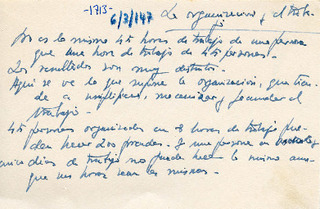 -1713-
6/3/147 La organización y el traba-
jo
No es lo mismo 45 horas de trabajo de una persona
que una hora de trabajo de 45 personas.-
Los resultados son muy distintos.-
Aquí se ve lo que supone la organización, que tien-
de a simplificar, mecanizar y fecundar el
trabajo.-
45 personas organizadas en 8 horas de trabajo pue-
den hacer dos grandes. Y una persona en
cinco días de trabajo no puede hacer lo mismo aun-
que las horas sean las mismas.-